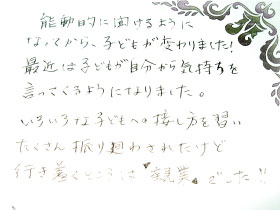 能動的に聞けるように
なってから、子どもが変わりました!
最近は子どもが自分から気持ちを
言ってくるようになりました。
いろいろな子どもへの接し方を習い
たくさん振り廻わされたけど
行き着くところは "親業" でした!!